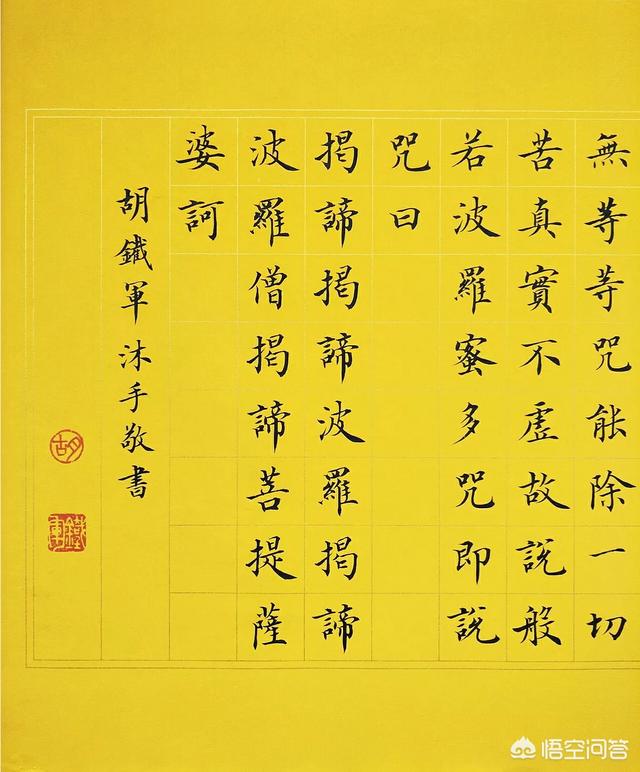 無等等咒能除一切
苦真實不虛故說般
若波羅蜜多咒即說
咒曰
揭諦揭諦波羅揭諦
波羅僧揭諦菩提薩
婆訶
胡鐵軍沐手敬書
胡
鐵軍
悟空问答